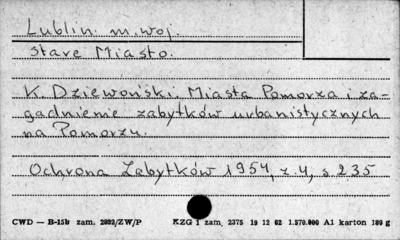 Lublin. m. woj.
Stare Miasto.
K. Dziewoński. Miasta Pomorza i za-
gadnienie zabytków urbanistycznych
na Pomorzu.
Ochrona Zabytków 1954, z. 4, s 235
CWD — B-15b zam. 2032/ZW/P KZG 1 zam. 2375 19 12 62 1.570.000 A1 karton 180 g